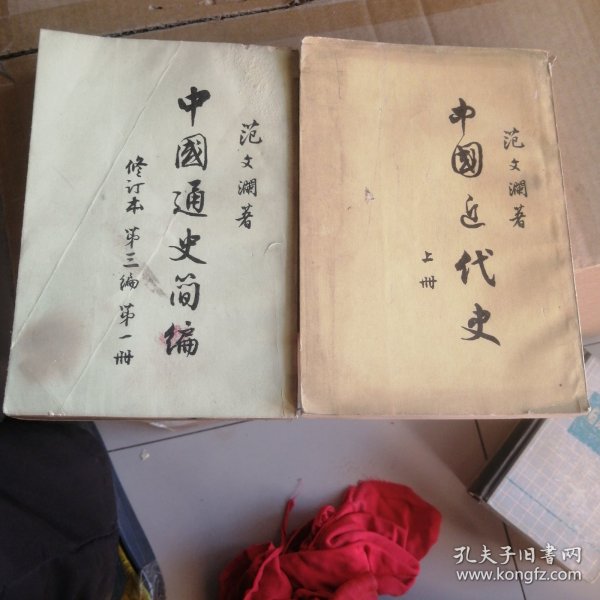 范文瀾著
中國通史简编
修订本 第三编 第一册
范文瀾著
中國近代史
上册
孔夫子旧书网
www.kongfz.com